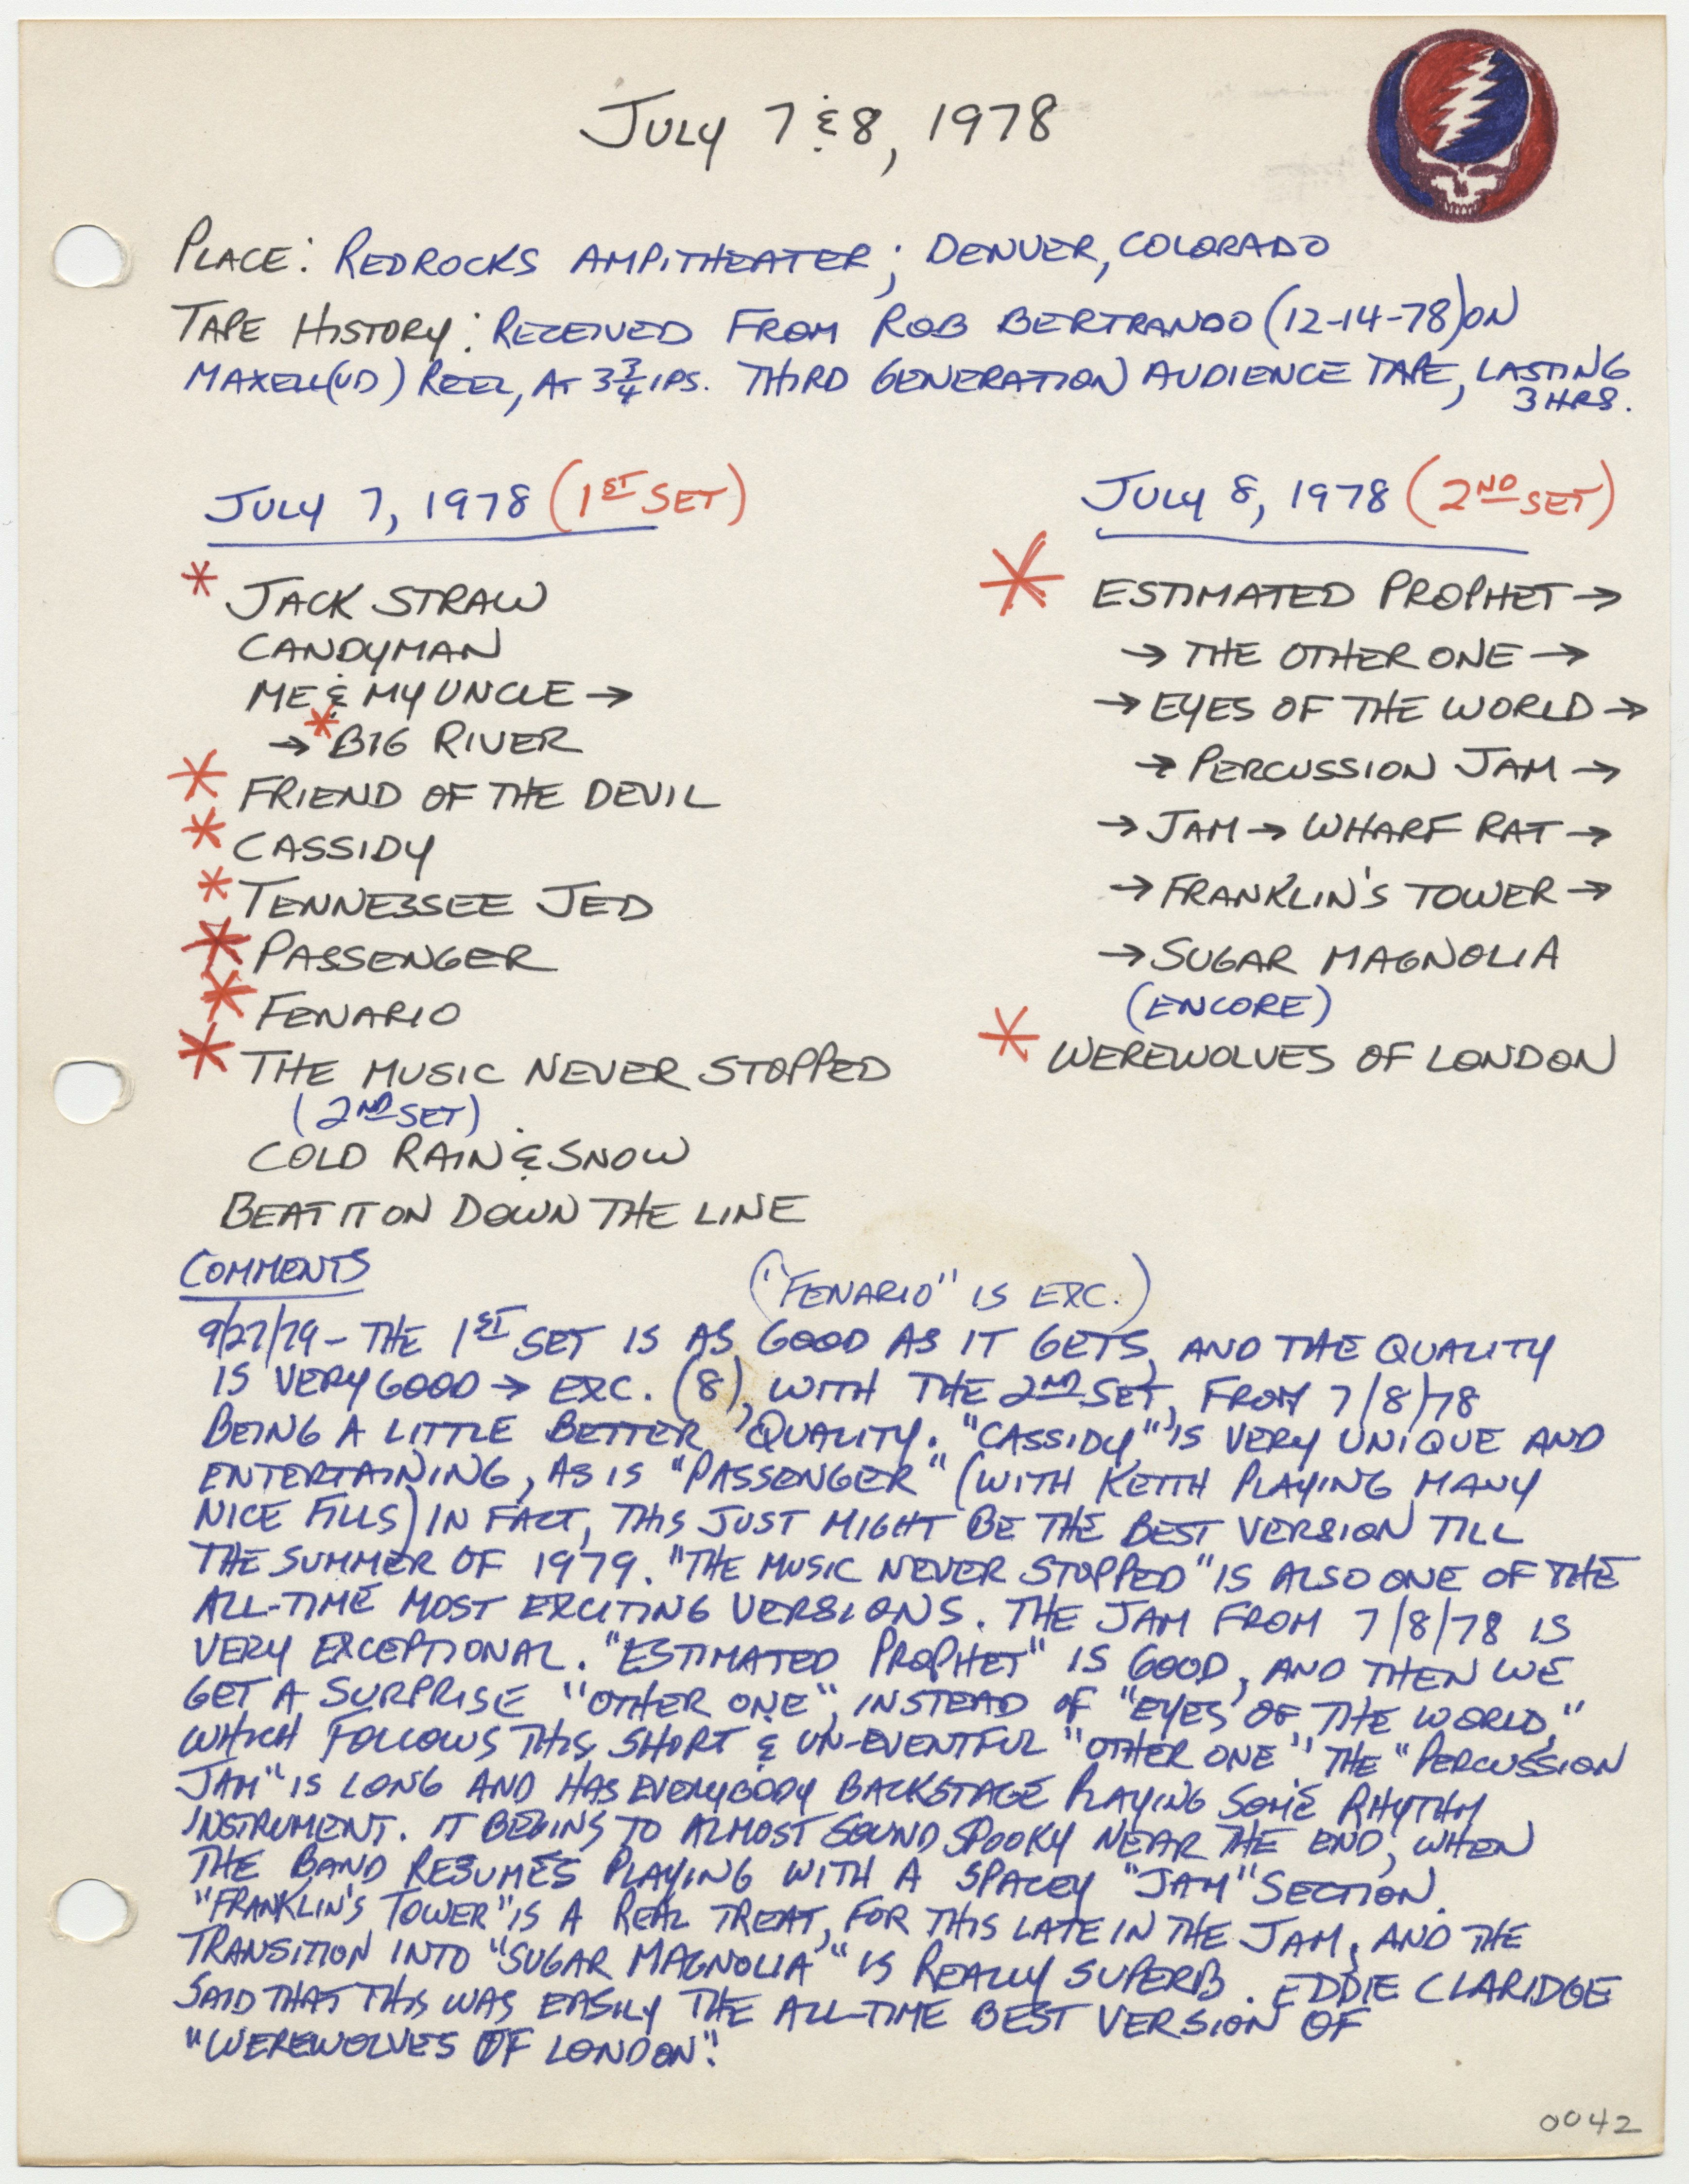 July 7 & 8, 1978
Place: Redrocks Ampitheater; Denver, Colorado
Tape History: Received from Rob Bertrando (12-14-78) on
Maxell (UD) Reel, at 3 3/4 ips. Third generation audience tape, lasting
3 hrs.
July 7, 1978 (1st set)
* Jack Straw
Candyman
Me & My Uncle →
→ * Big River
* Friend of the Devil
* Cassidy
* Tennessee Jed
* Passenger
* Fenario
* The Music Never Stopped
(2nd set)
Cold Rain & Snow
Beat It On Down The Line
July 8, 1978 (2nd set)
* Estimated Prophet →
→ The Other One →
→ Eyes of the World →
→ Percussion Jam →
→ Jam → Wharf Rat →
→ Franklin's Tower →
→ Sugar Magnolia
(Encore)
* Werewolves of London
Comments
("Fenario" is exc.)
9/27/79 - The 1st set is as good as it gets, and the quality
is very good → exc. (8), with the 2nd set, from 7/8/78
being a little better quality. "Cassidy" is very unique and
entertaining, as is "Passenger" (with Keith playing many
nice fills) in fact, this just might be the best version till
the summer of 1979. "The Music Never Stopped" is also one of the
all-time most exciting versions. The jam from 7/8/78 is
very exceptional. "Estimated Prophet" is good, and then we
get a surprise "Other One", instead of "Eyes of the World,"
which follows this short & un-eventful "Other One" The "Percussion
Jam" is long and has everybody backstage playing some rhythm
instrument. It begins to almost sound spooky near the end, when
the band resumes playing with a spacey "Jam" section.
"Franklin's Tower" is a real treat, for this late in the jam, and the
transition into "Sugar Magnolia" is really superb. Eddie Claridge
said that this was easily the all-time best version of
"Werewolves of London".
0042